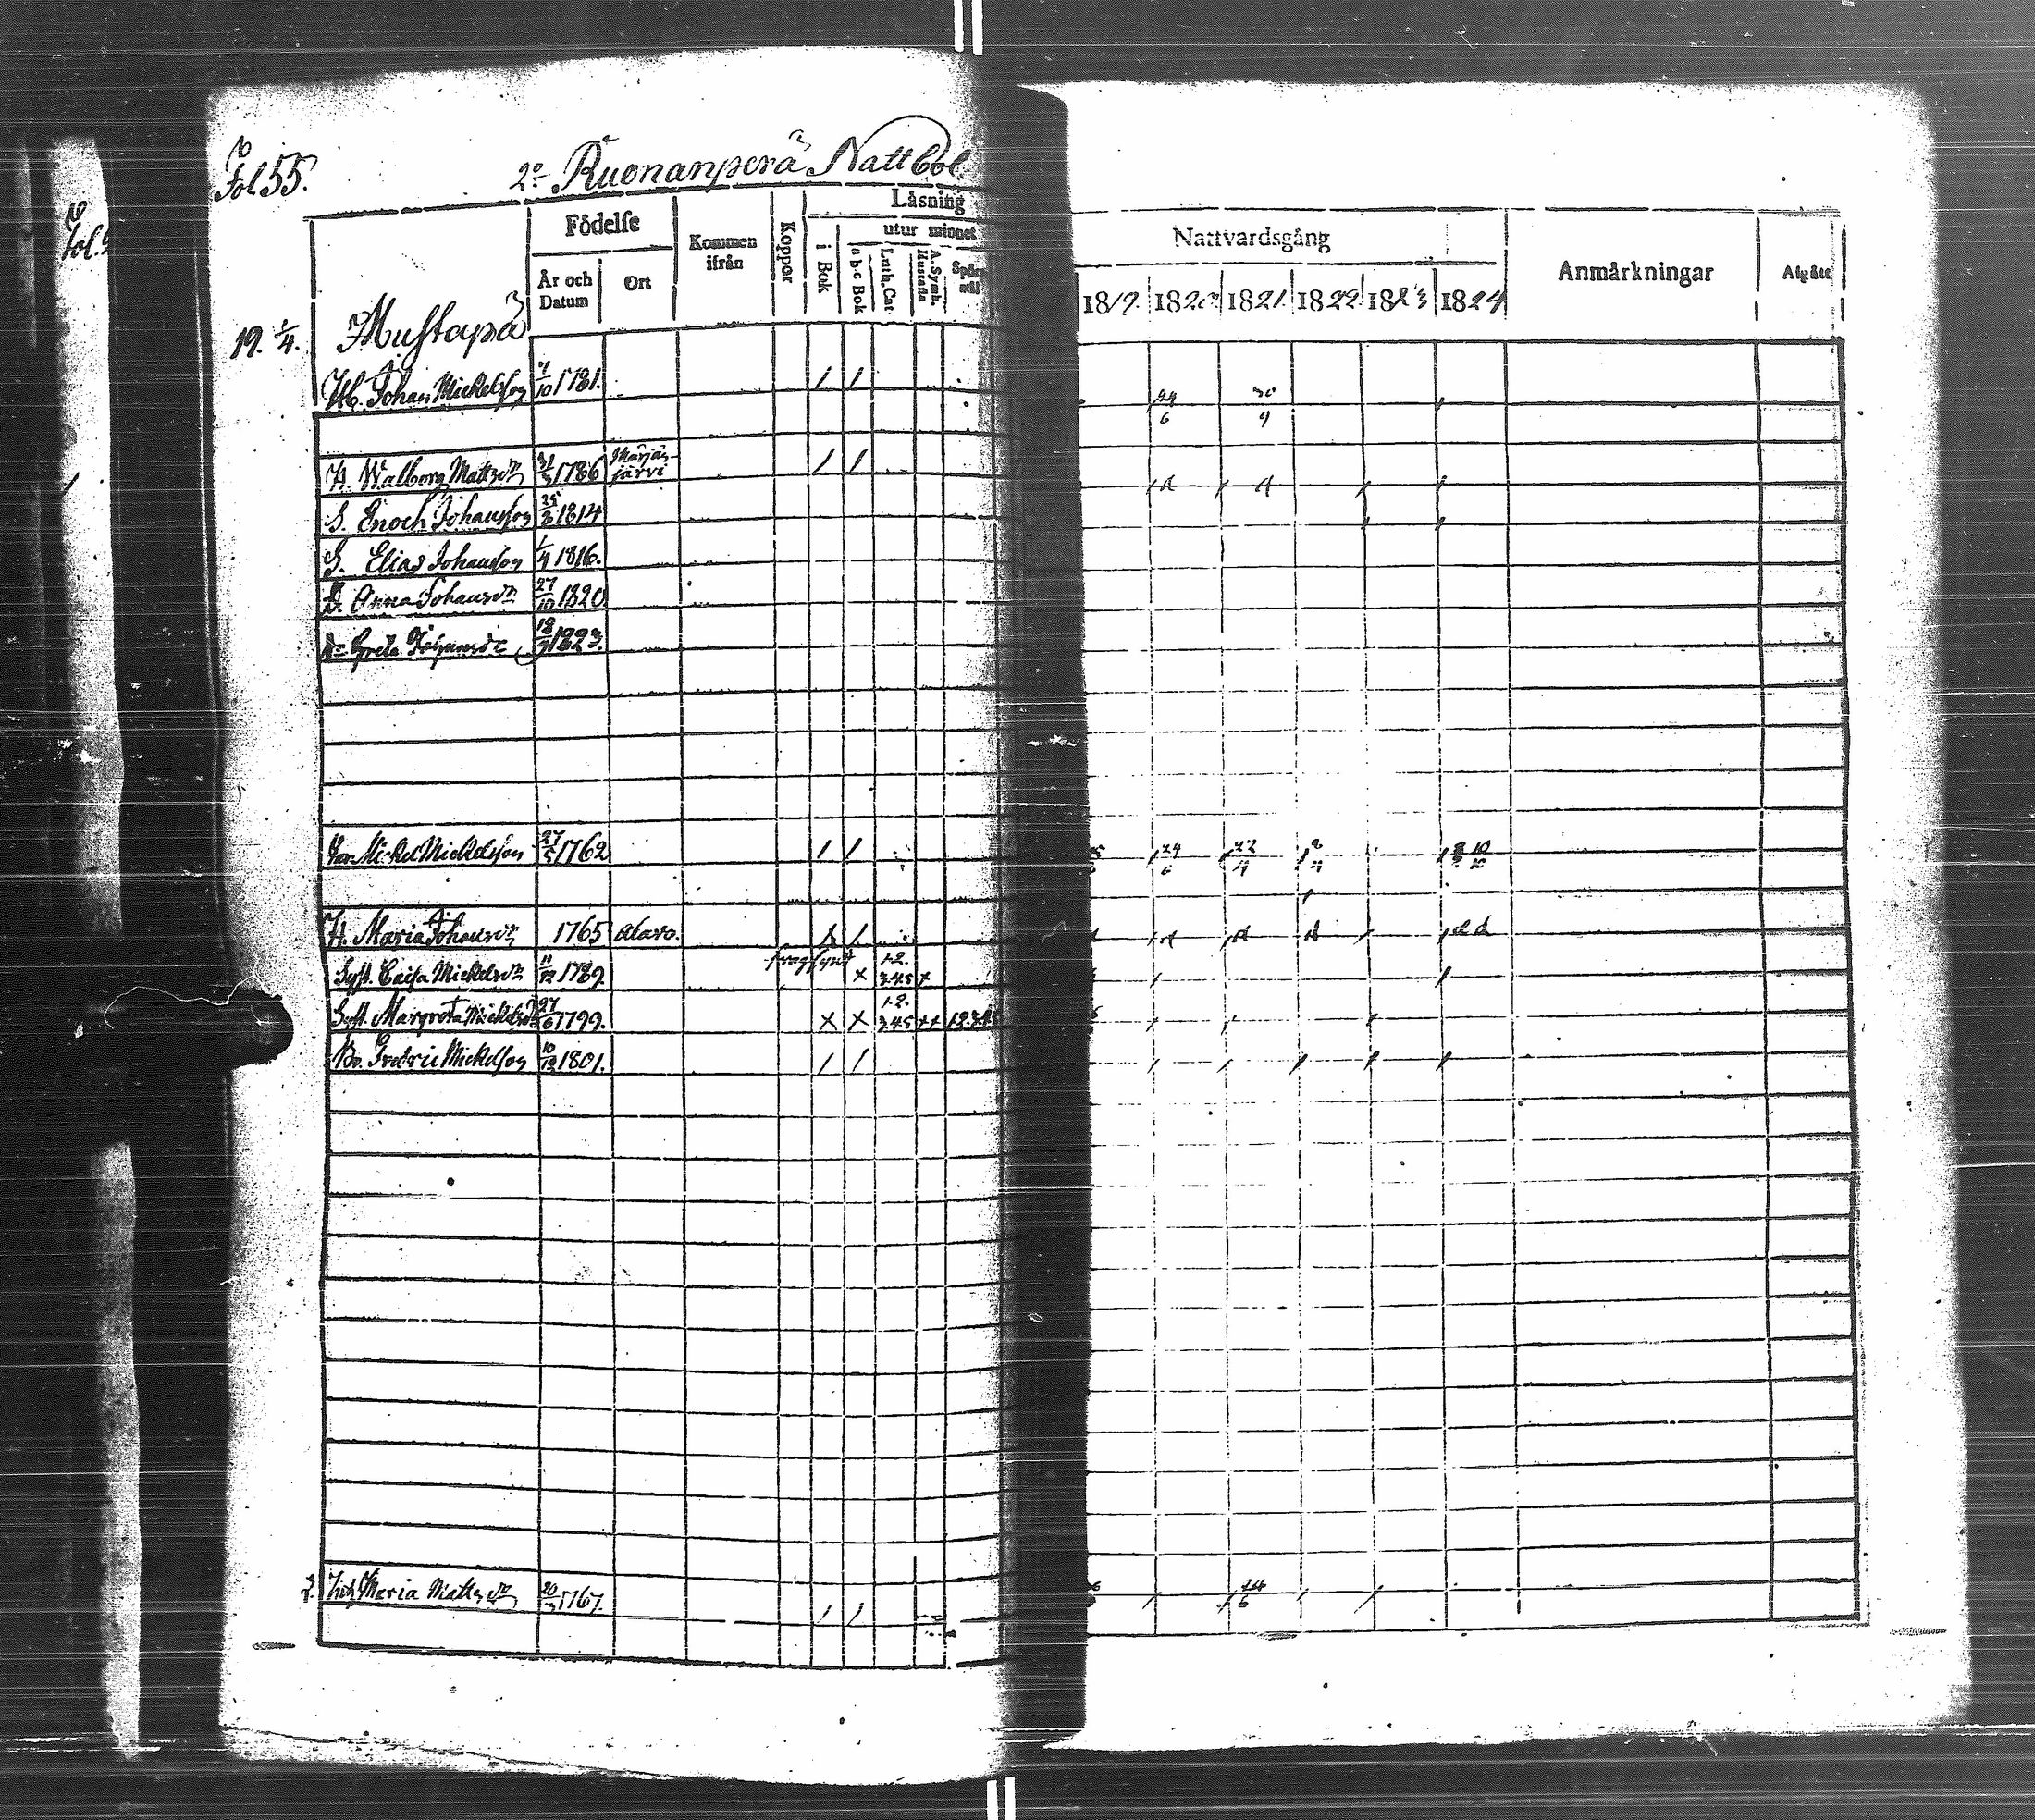 Fol 55.
2o Ruonanperä Nattbol
Födelse
Kommen ifrån
Koppor
Läsning
utur minnet
År och Datum
Ort
i Bok
a b c Bok
Luth. Cat.
A. Symb. Hustafla
Nattvardsgång
1819. 1820. 1821. 1822. 1823 1824
Anmärkningar
Afgått
19. 1/4. Mustapä
Hb. Johan Mickelsson 7/10 1781. / / 24/6 30/9
H. Walborg Mattsdr 31/3 1786 Marjärjärvi / /
S. Enoch Johansson 25/2 1814
S. Elias Johansson 1/4 1816.
D. Anna Johansdr 27/10 1820
Dr Greta Johansdr 18/9 1823.
Far. Mickel Mickelsson 27/5 1762 / / 24/6 22/4
H. Maria Johansdr 1765 Alavo.
Syst. Caisa Mickelsdr 11/12 1789. svagsynt x 1.2. 3.4.5 +
Syst. Margreta Mickelsdr 27/6 1799. x x 1.2. 3.4.5 ++ 1.2.3.4.5
Bo. Fredric Mickelsson 10/12 1801. / /
Inh. Maria Mattsdr 20/3 1767. / / 24/6